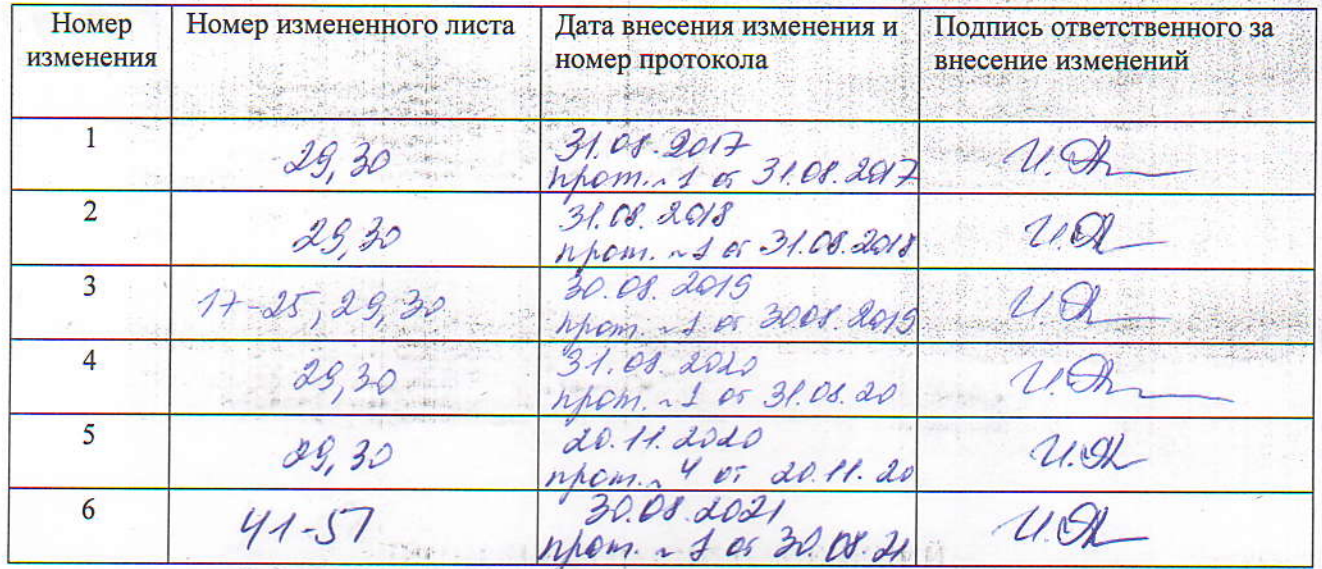 Номер изменения
Номер измененного листа
Дата внесения изменения и номер протокола
Подпись ответственного за внесение изменений
1
29,30
31.08.2017
прот. №1 от 31.08.2017
2
29,30
31.08.2018
прот. №1 от 31.08.2018
3
17-25, 29, 30
30.08.2019
прот. №1 от 30.08.2019
4
29,30
31.08.2020
прот. №1 от 31.08.20
5
29,30
20.11.2020
прот. № 4 от 20.11.20
6
41-51
30.08.2021
прот. №1 от 30.08.21